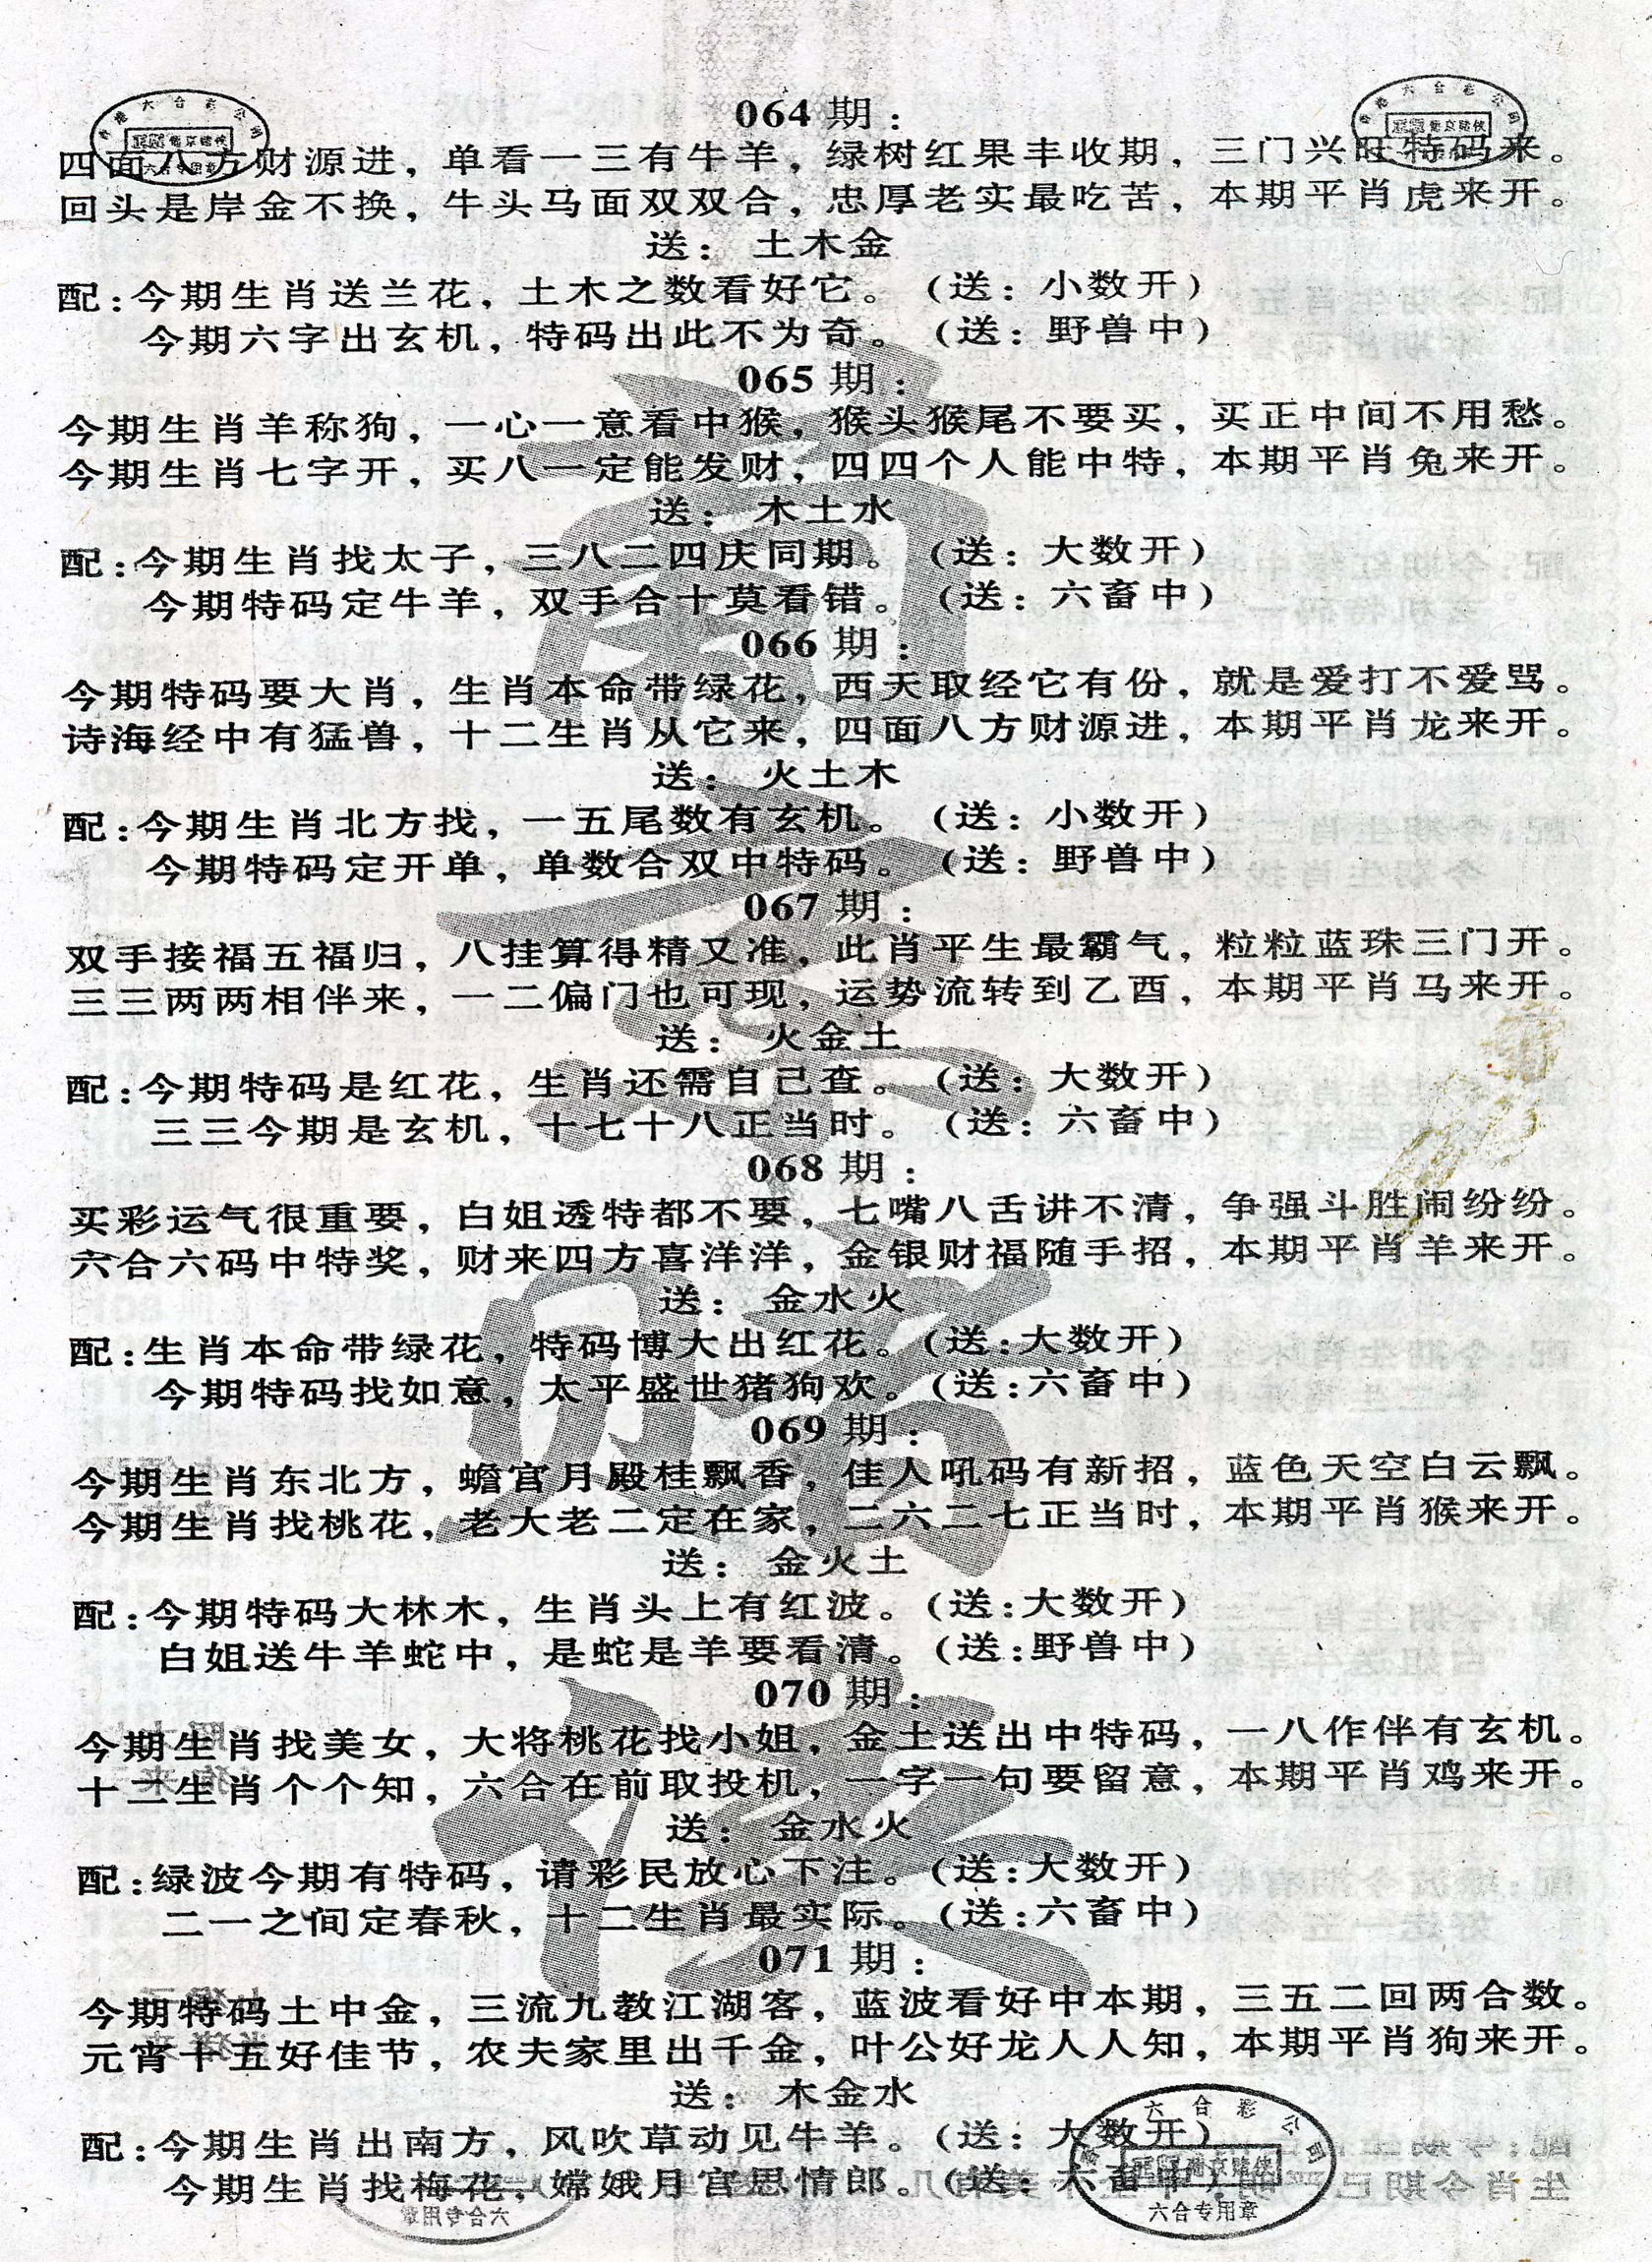 064期：
四面八方财源进，单看一三有牛羊，绿树红果丰收期，三门兴旺特码来。
回头是岸金不换，牛头马面双双合，忠厚老实最吃苦，本期平肖虎来开。
送： 土木金
配:今期生肖送兰花，土木之数看好它。(送：小数开)
今期六字出玄机，特码出此不为奇。(送：野兽中)
065期：
今期生肖羊称狗，一心一意看中猴，猴头猴尾不要买，买正中间不用愁。
今期生肖七字开，买八一定能发财，四四个人能中特，本期平肖兔来开。
送： 木土水
配:今期生肖找太子，三八二四庆同期。(送：大数开)
今期特码定牛羊，双手合十莫看错。(送：六畜中)
066期：
今期特码要大肖，生肖本命带绿花，西天取经它有份，就是爱打不爱骂。
诗海经中有猛兽，十二生肖从它来，四面八方财源进，本期平肖龙来开。
送： 火土木
配:今期生肖北方找，一五尾数有玄机。(送：小数开)
今期特码定开单，单数合双中特码。(送：野兽中)
067期：
双手接福五福归，八挂算得精又准，此肖平生最霸气，粒粒蓝珠三门开。
三三两两相伴来，一二偏门也可现，运势流转到乙酉，本期平肖马来开。
送： 火金土
配:今期特码是红花，生肖还需自己查。(送：大数开)
三三今期是玄机，十七十八正当时。(送：六畜中)
068期：
买彩运气很重要，白姐透特都不要，七嘴八舌讲不清，争强斗胜闹纷纷。
六合六码中特奖，财来四方喜洋洋，金银财福随手招，本期平肖羊来开。
送： 金水火
配:生肖本命带绿花，特码博大出红花。(送:大数开)
今期特码找如意，太平盛世猪狗欢。(送:六畜中)
069期：
今期生肖东北方，蟾宫月殿桂飘香，佳人吼码有新招，蓝色天空白云飘。
今期生肖找桃花，老大老二定在家，二六二七正当时，本期平肖猴来开。
送： 金火土
配:今期特码大林木，生肖头上有红波。(送:大数开)
白姐送牛羊蛇中，是蛇是羊要看清。(送:野兽中)
070期：
今期生肖找美女，大将桃花找小姐，金土送出中特码，一八作伴有玄机。
十二生肖个个知，六合在前取投机，一字一句要留意，本期平肖鸡来开。
送： 金水火
配:绿波今期有特码，请彩民放心下注。(送:大数开)
二一之间定春秋，十二生肖最实际。(送:六畜中)
071期：
今期特码土中金，三流九教江湖客，蓝波看好中本期，三五二回两合数。
元宵十五好佳节，农夫家里出千金，叶公好龙人人知，本期平肖狗来开。
送： 木金水
配:今期生肖出南方，风吹草动见牛羊。(送：大数开)
今期生肖找梅花，嫦娥月宫思情郎。(送：六畜中)
六合专用章